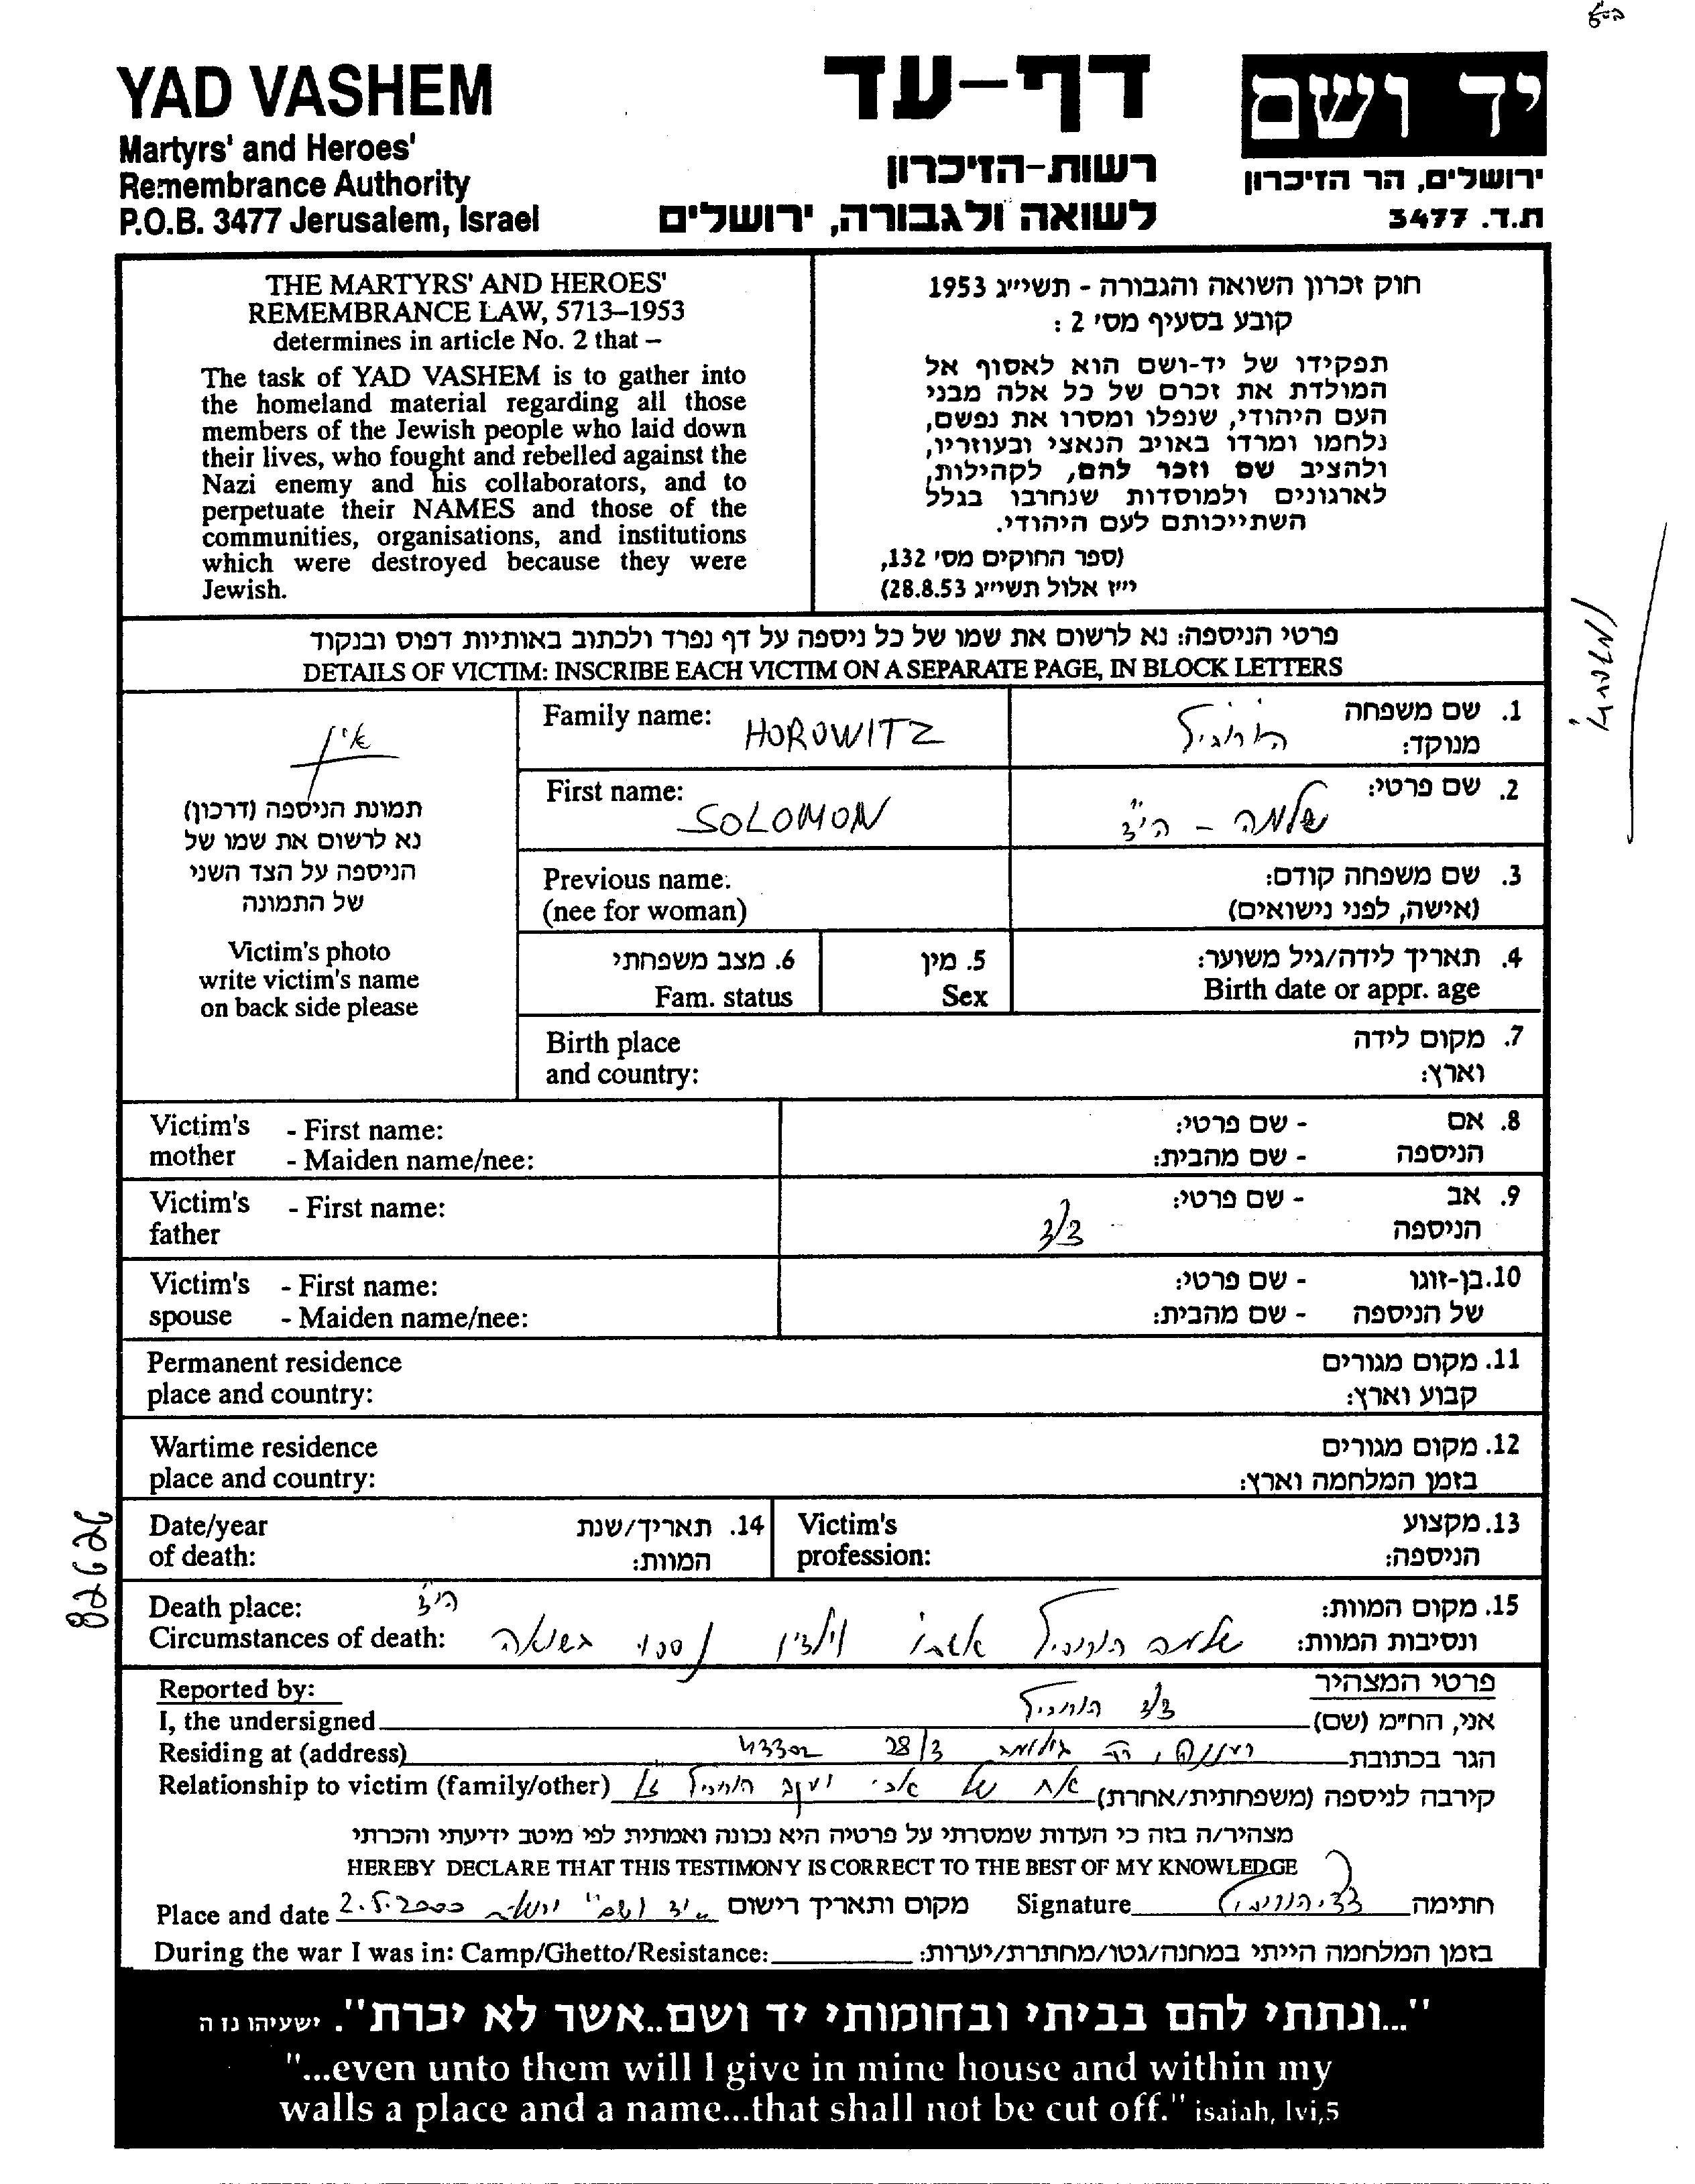 YAD VASHEM
Martyrs' and Heroes'
Remembrance Authority
P.O.B. 3477 Jerusalem, Israel
דף-עד
רשות-הזיכרון
לשואה ולגבורה, ירושלים
יד ושם
ירושלים, הר הזיכרון
ת.ד. 3477
THE MARTYRS' AND HEROES'
REMEMBRANCE LAW, 5713–1953
determines in article No. 2 that –
The task of YAD VASHEM is to gather into
the homeland material regarding all those
members of the Jewish people who laid down
their lives, who fought and rebelled against the
Nazi enemy and his collaborators, and to
perpetuate their NAMES and those of the
communities, organisations, and institutions
which were destroyed because they were
Jewish.
חוק זכרון השואה והגבורה - תשי״ג 1953
קובע בסעיף מס׳ 2 :
תפקידו של יד-ושם הוא לאסוף אל
המולדת את זכרם של כל אלה מבני
העם היהודי, שנפלו ומסרו את נפשם,
נלחמו ומרדו באויב הנאצי ובעוזריו,
ולהציב שם וזכר להם, לקהילות,
לארגונים ולמוסדות שנחרבו בגלל
השתייכותם לעם היהודי.
(ספר החוקים מס׳ 132,
י״ז אלול תשי״ג 28.8.53)
פרטי הניספה: נא לרשום את שמו של כל ניספה על דף נפרד ולכתוב באותיות דפוס ובנקוד
DETAILS OF VICTIM: INSCRIBE EACH VICTIM ON A SEPARATE PAGE, IN BLOCK LETTERS
אין
תמונת הניספה (דרכון)
נא לרשום את שמו של
הניספה על הצד השני
של התמונה
Victim's photo
write victim's name
on back side please
Family name: HOROWITZ
1. שם משפחה
מנוקד: הורוביץ
First name: SOLOMON
2. שם פרטי: שלמה - הי״ד
Previous name:
(nee for woman)
3. שם משפחה קודם:
(אישה, לפני נישואים)
6. מצב משפחתי
Fam. status
5. מין
Sex
4. תאריך לידה/גיל משוער:
Birth date or appr. age
Birth place
and country:
7. מקום לידה
וארץ:
Victim's mother - First name:
- Maiden name/nee:
8. אם הניספה - שם פרטי:
- שם מהבית:
Victim's father - First name:
9. אב הניספה - שם פרטי:
דוד
Victim's spouse - First name:
- Maiden name/nee:
10. בן-זוגו של הניספה - שם פרטי:
- שם מהבית:
Permanent residence
place and country:
11. מקום מגורים
קבוע וארץ:
Wartime residence
place and country:
12. מקום מגורים
בזמן המלחמה וארץ:
Date/year
of death:
14. תאריך/שנת
המוות:
Victim's
profession:
13. מקצוע
הניספה:
Death place:
Circumstances of death:
15. מקום המוות:
ונסיבות המוות:
שלמה הורוביץ אשתו וילדיו נספו בשואה הי״ד
Reported by:
פרטי המצהיר
I, the undersigned
דוד הורוביץ
אני, הח״מ (שם)
Residing at (address)
רעננה, רח 28/3 43302
הגר בכתובת
Relationship to victim (family/other)
אח של אבי יעקב הורוביץ ז״ל
קירבה לניספה (משפחתית/אחרת)
מצהיר/ה בזה כי העדות שמסרתי על פרטיה היא נכונה ואמתית לפי מיטב ידיעתי והכרתי
HEREBY DECLARE THAT THIS TESTIMONY IS CORRECT TO THE BEST OF MY KNOWLEDGE
Place and date 2.5.2000 "יד ושם" מקום ותאריך רישום
Signature דוד הורוביץ חתימה
During the war I was in: Camp/Ghetto/Resistance:
בזמן המלחמה הייתי במחנה/גטו/מחתרת/יערות:
82626
"...ונתתי להם בביתי ובחומותי יד ושם..אשר לא יכרת". ישעיהו נו ה
"...even unto them will I give in mine house and within my
walls a place and a name...that shall not be cut off." isaiah, lvi,5